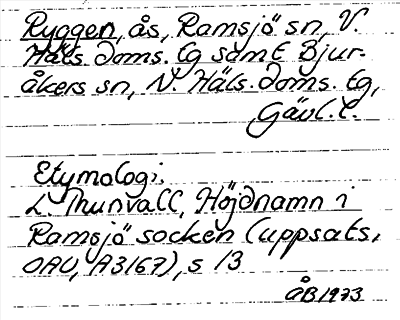 Ryggen, ås, Ramsjö sn, V.
Häls. doms. Eg samt Bjur-
åkers sn, N. Häls. doms. Eg,
Gävl. l.
Etymologi.
L. Thunvall, Höjdnamn i
Ramsjö socken (uppsats,
OAU, A3167), s 13
ÅB 1973